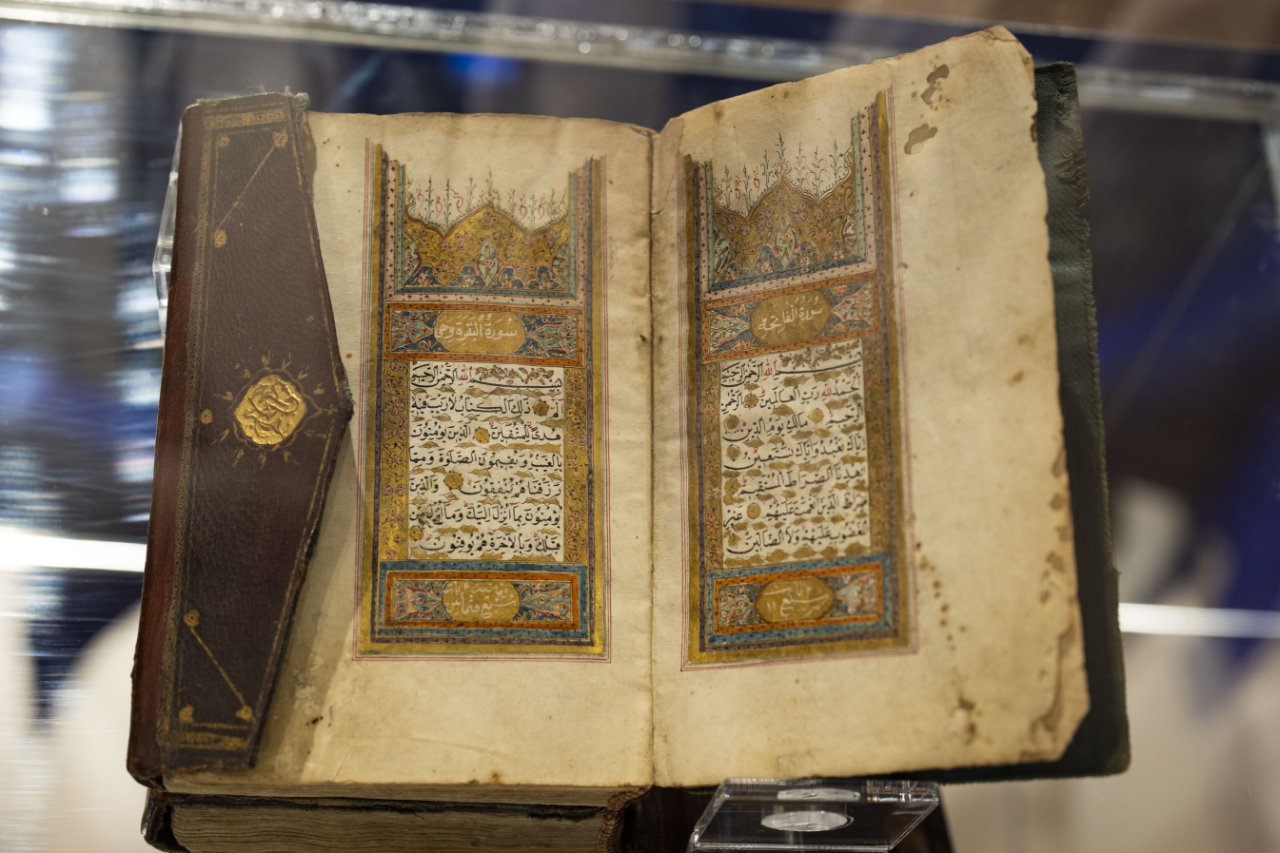 سورة الفاتحة
بسم الله الرحمن الرحيم
الحمد لله رب العالمين الرحمن
الرحيم مالك يوم الدين
اياك نعبد واياك نستعين
اهدنا الصراط المستقيم
صراط الذين انعمت عليهم غير
المغضوب عليهم ولا الضالين
سورة البقرة وهي
بسم الله الرحمن الرحيم
الم ذلك الكتاب لا ريب فيه
هدى للمتقين الذين يومنون
بالغيب ويقيمون الصلوة ومما
رزقناهم ينفقون والذين
يومنون بما انزل اليك وما انزل من
قبلك وبالاخرة هم يوقنون